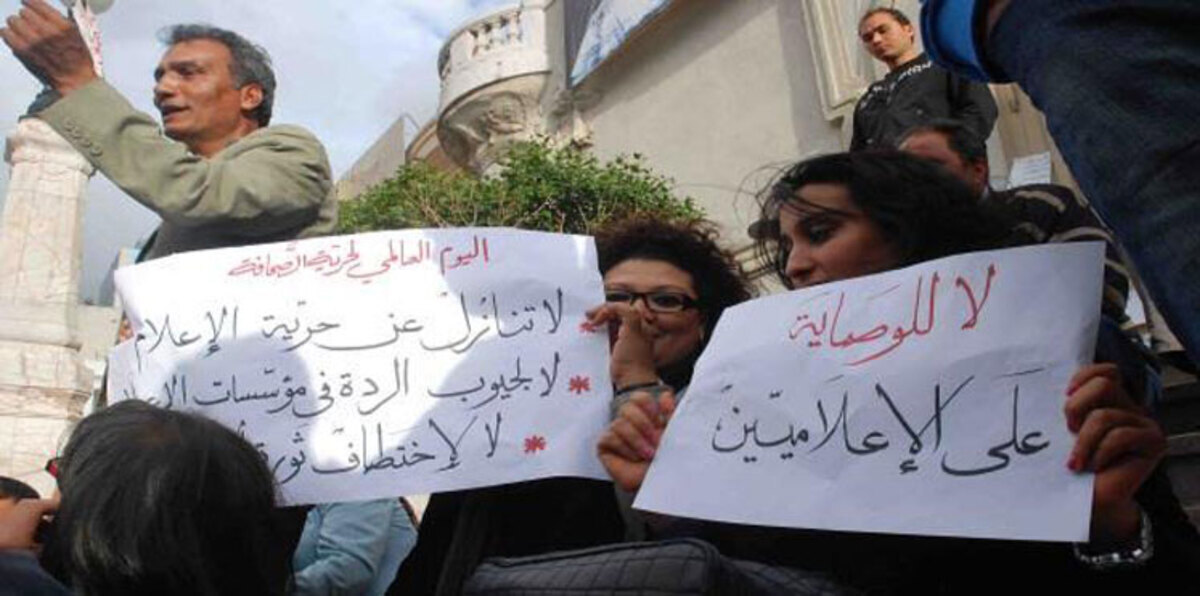 اليوم العالمي لحرية الصحافة
* لا تنازل عن حرّية الإعلام
* لا لجيوب الردة في مؤسّسات
* لا لإختطاف ثورة
لا للوصاية
على الإعلاميّين